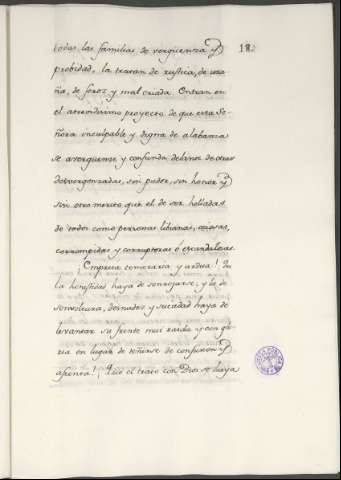 18.
todas las familias de vergüenza y
probidad, la tratan de rustica, de ura-
ña, de feroz y mal criada. Entran en
el atrevidisimo proyecto de que esta Se-
ñora inculpable y digna de alabanza
se averguenze y confunda delante de otras
desvergonzadas, sin pudor, sin honor y
sin otro merito que el de ser holladas
de todos como personas libianas, ociosas,
corrompidas y corruptoras ó escandalosas.
Empresa temeraria y ardua! Que
la honestidad haya de sonrojarse, y la de-
semboltura, desnudez y suciedad haya de
levantar su frente mui raida y con glo-
ria en lugar de teñirse de confusion y
afrenta! Que el trato con Dios se haya